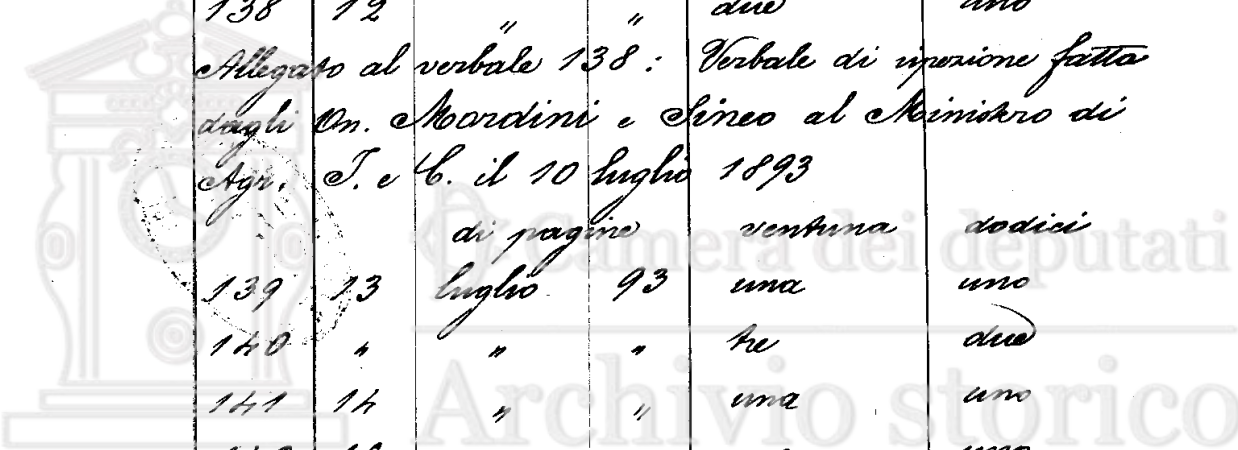 138 12 " " due uno
Allegato al verbale 138: Verbale di ispezione fatta
dagli On. Mordini e Sineo al Ministro di
Agr. I. e C. il 10 luglio 1893
di pagine ventuna dodici
139 13 luglio 93 una uno
140 " " " tre due
141 14 " " una uno
uno
Camera dei deputati
Archivio storico